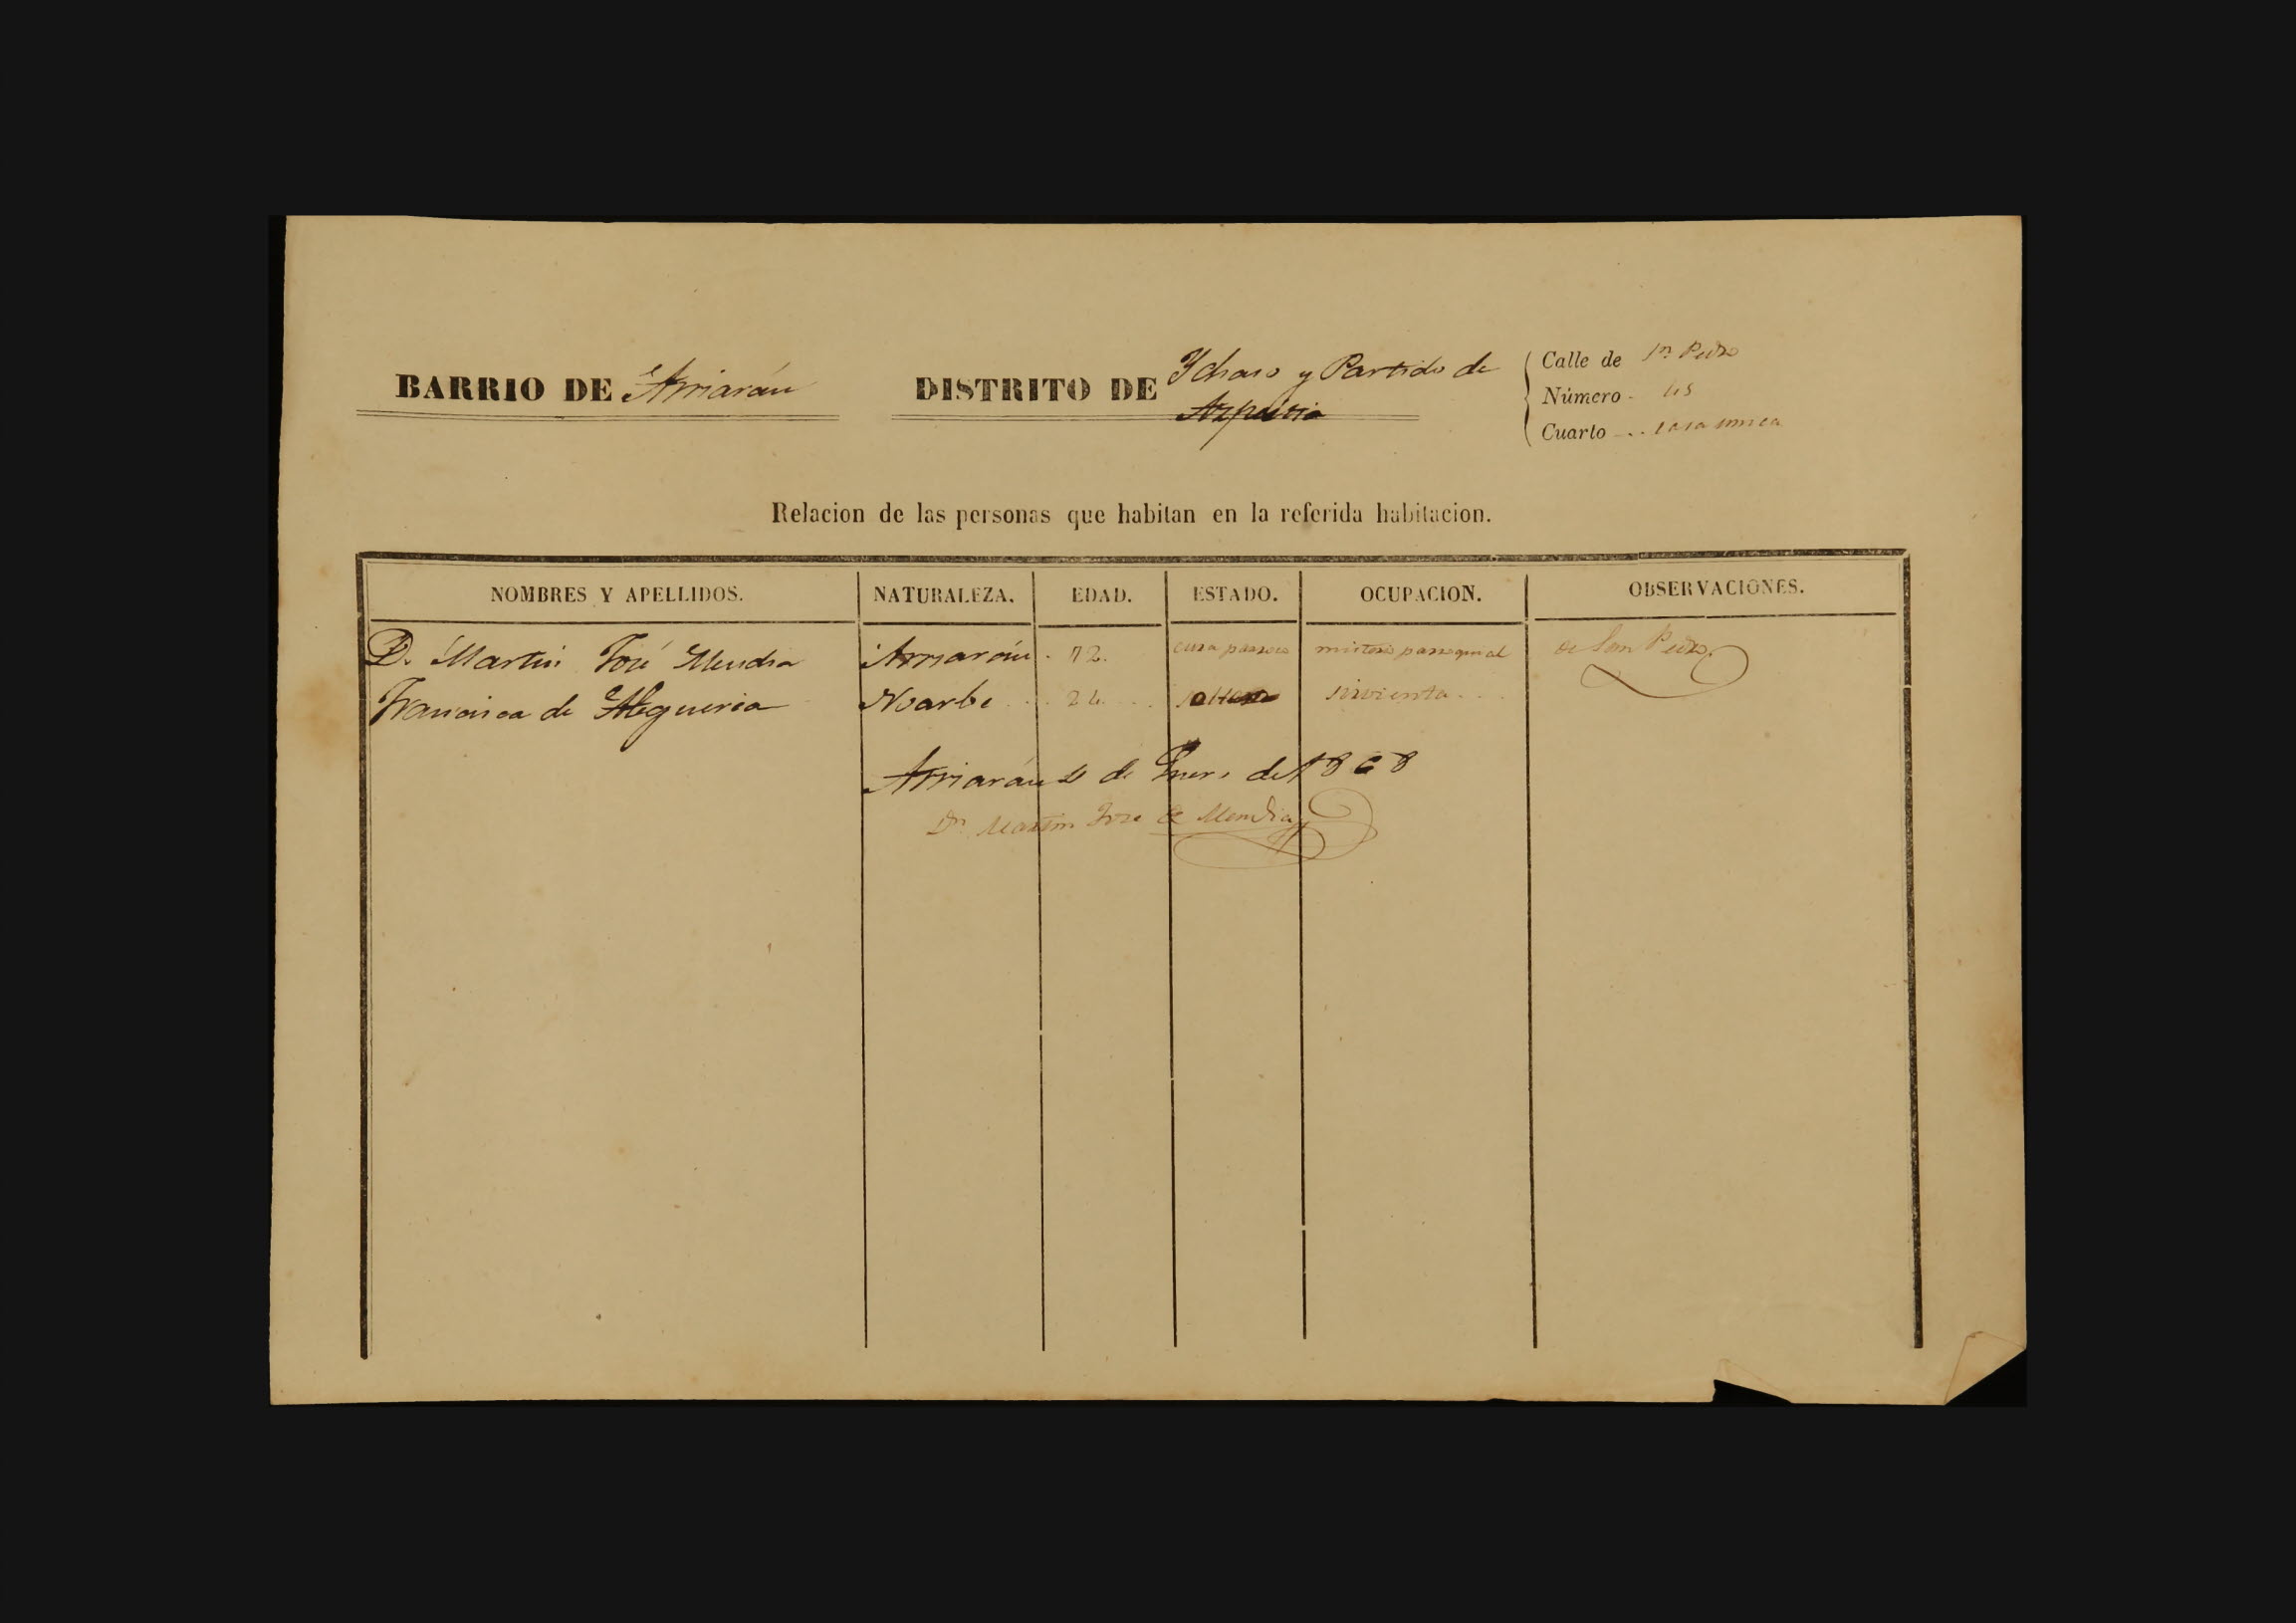 BARRIO DE Arriarán
DISTRITO DE Ychaso y Partido de
Azpeitia
Calle de Sn Pedro
Número - 45
Cuarto - .. casa unica
Relacion de las personas que habitan en la referida habitacion.
NOMBRES Y APELLIDOS. NATURALEZA. EDAD. ESTADO. OCUPACION. OBSERVACIONES.
D. Martin José Mendia Arriarán . 72. cura parroco parroquial de San Pedro.
Francisca de Noarbe 24 soltera sirvienta
Arriarán de Enero de 1868
Dn Martin Jose de Mendia